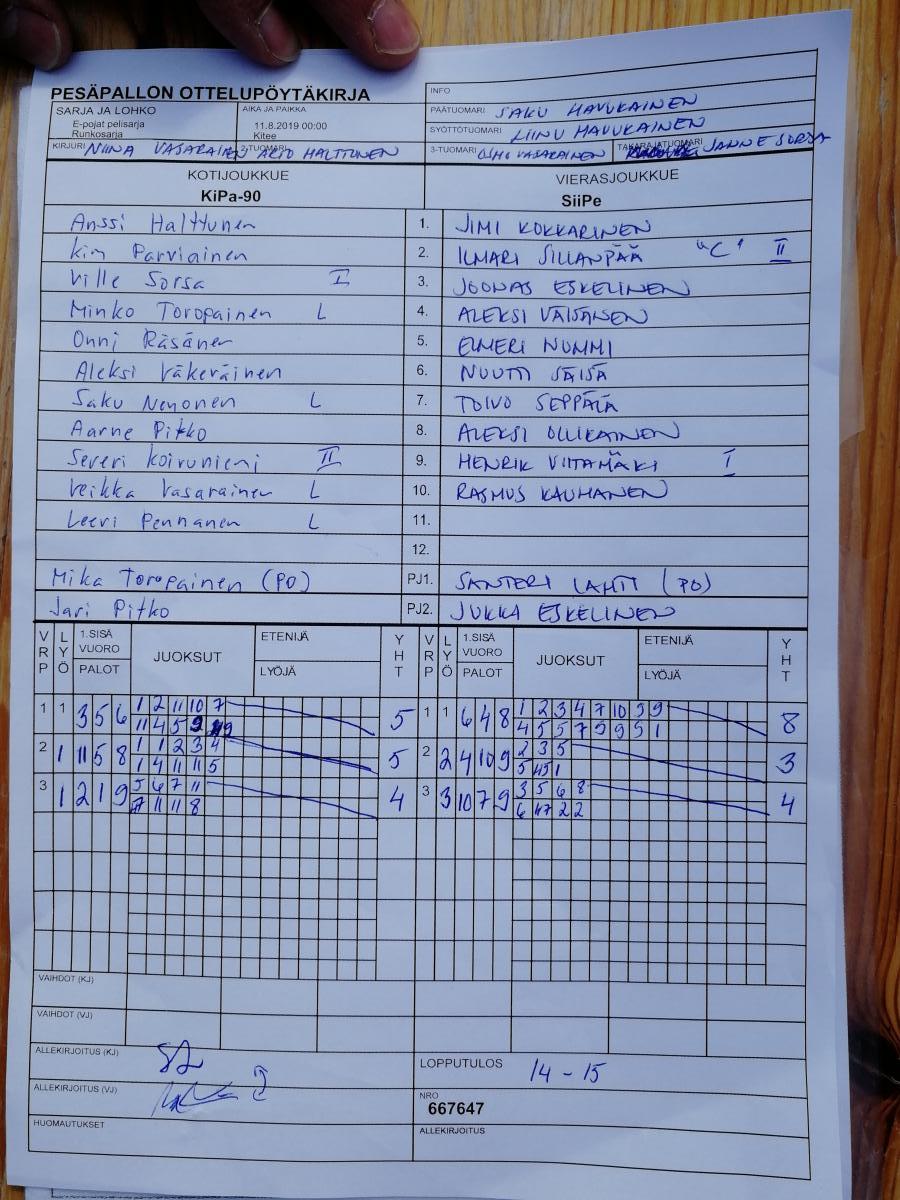 PESÄPALLON OTTELUPÖYTÄKIRJA
INFO
SARJA JA LOHKO
E-pojat pelisarja
Runkosarja
AIKA JA PAIKKA
11.8.2019 00:00
Kitee
PÄÄTUOMARI SAKU HAVUKAINEN
SYÖTTÖTUOMARI LIINU HAVUKAINEN
KIRJURI NIINA VASARAINEN 2-TUOMARI ARTO HALTTUNEN
3-TUOMARI VASARAINEN TAKARAJATUOMARI JANNE SORSA
KOTIJOUKKUE
KiPa-90
VIERASJOUKKUE
SiiPe
Anssi Halttunen 1. JIMI KOKKARINEN
Kim Parviainen 2. ILMARI SILLANPÄÄ "C" II
Ville Sorsa I 3. JOONAS ESKELINEN
Minko Toropainen L 4. ALEKSI VÄISÄNEN
Onni Räsänen 5. ELMERI NUMMI
Aleksi Väkeräinen 6. NUUTTI SÄISÄ
Saku Nenonen L 7. TOIVO SEPPÄLÄ
Aarne Pitko 8. ALEKSI OLLIKAINEN
Severi Koivuniemi II 9. HENRIK VIITAMÄKI I
Veikka Vasarainen L 10. RASMUS KAUHANEN
Leevi Pennanen L 11.
12.
Mika Toropainen (PO) PJ1. SANTERI LAHTI (PO)
Jari Pitko PJ2. JUKKA ESKELINEN
VRP LYÖ 1.SISÄ VUORO PALOT JUOKSUT ETENIJÄ LYÖJÄ YHT VRP LYÖ 1.SISÄ VUORO PALOT JUOKSUT ETENIJÄ LYÖJÄ YHT
1 1 3 5 6 1 2 11 10 7 5 1 1 6 4 8 1 2 3 4 7 10 3 9 8
11 4 5 9 4 5 5 7 9 9 5 1
2 1 11 5 8 1 1 2 3 4 5 2 2 4 10 9 2 3 5 3
1 4 11 11 5 5 1
3 1 2 1 9 5 6 7 11 4 3 3 10 7 9 3 5 6 8 4
7 11 11 8 6 2 2
VAIHDOT (KJ)
VAIHDOT (VJ)
ALLEKIRJOITUS (KJ)
LOPPUTULOS 14 - 15
ALLEKIRJOITUS (VJ)
NRO
667647
HUOMAUTUKSET
ALLEKIRJOITUS